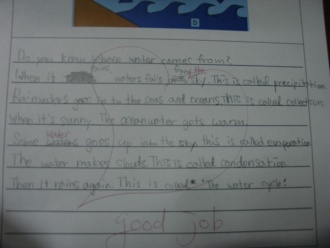 D
Do you know where water comes from?
When it rains water falls from the sky. This is called precipitation
Rainwaters goes to the seas and oceans. This is called collection
When it's sunny. The oceanwater gets warm.
Some water goes up into the sky. this is called evaporation
The water makes clouds. This is called condensation
Then it rains again. This is called "The water cycle"
good job